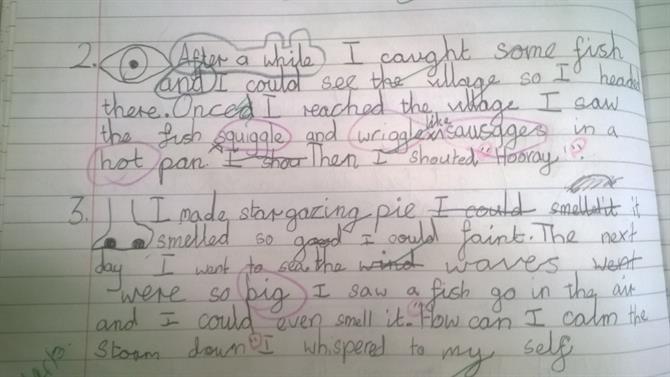 2. After a while I caught some fish
and I could see the village so I headed
there. Onced I reached the village I saw
the fish squiggle and wriggle like sausages in a
hot pan. I shou Then I shouted "Hooray".
3. I made stargazing pie I could smell it it
smelled so good I could faint. The next
day I went to sea. the wind waves went
were so big I saw a fish go in the air
and I could even smell it. "How can I calm the
storm down" I whispered to my self